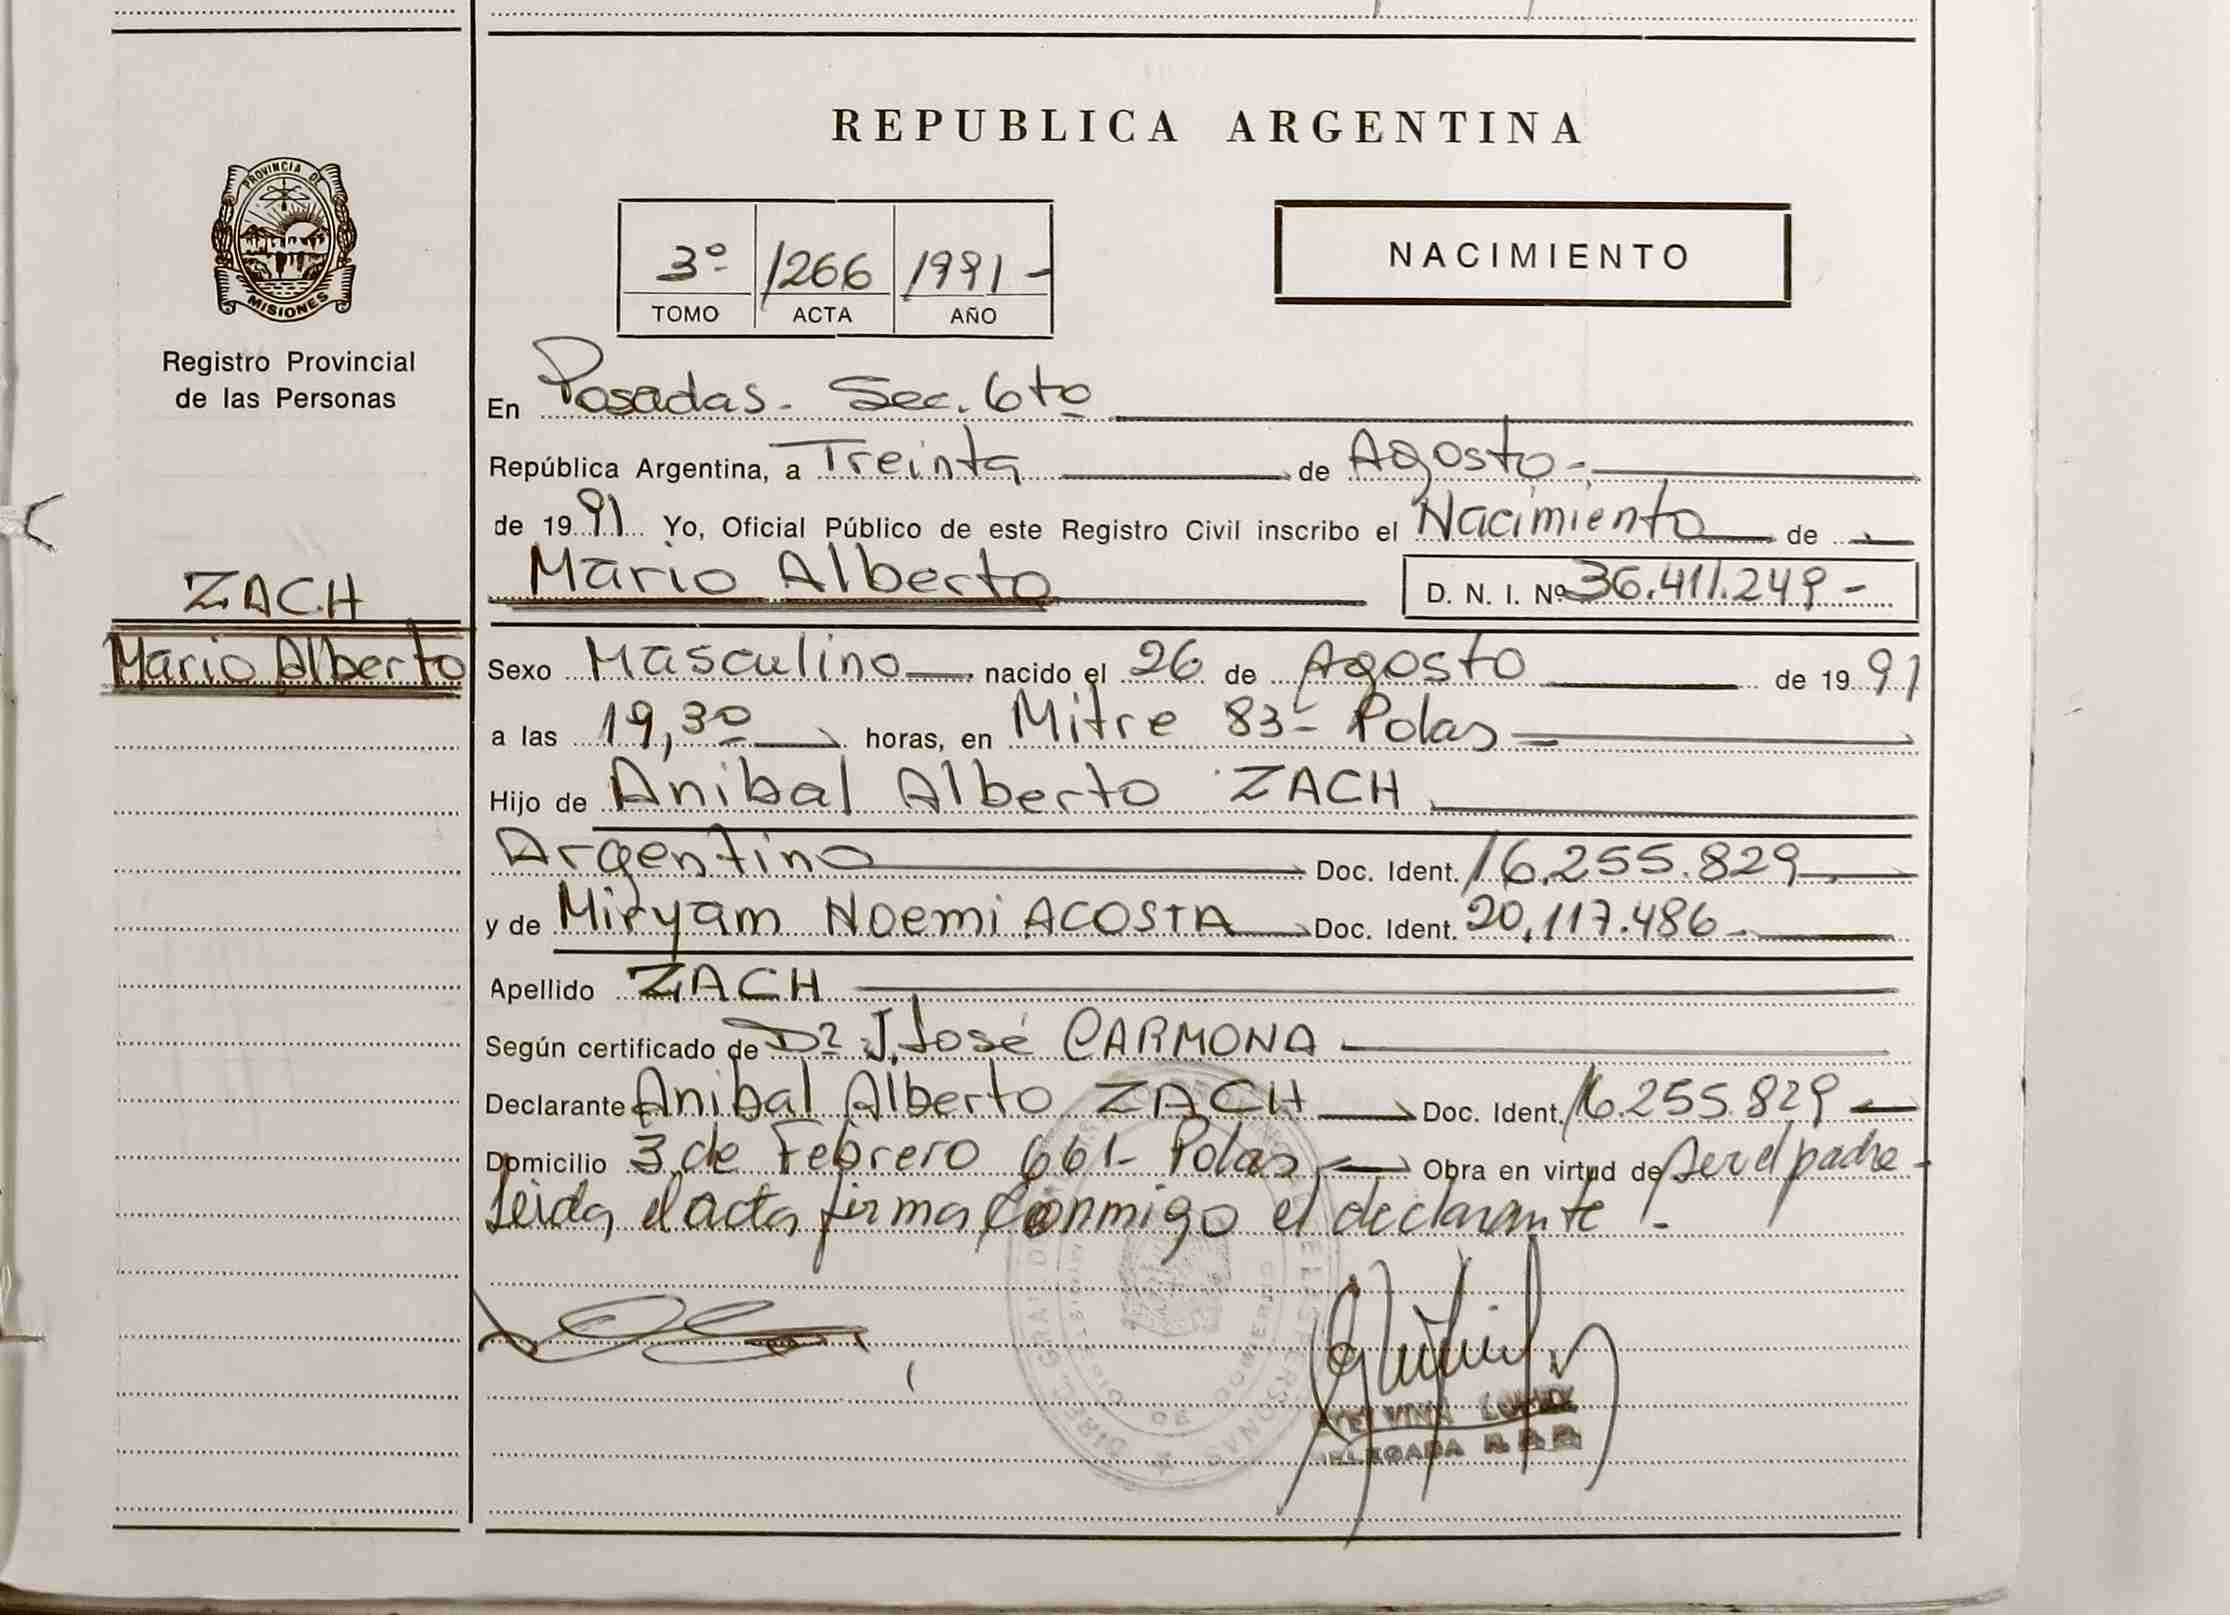 REPUBLICA ARGENTINA
PROVINCIA DE
MISIONES
Registro Provincial
de las Personas
3º 1266 1991 -
TOMO ACTA AÑO
NACIMIENTO
En Posadas - Sec. 6ta
República Argentina, a Treinta de Agosto -
de 1991 Yo, Oficial Público de este Registro Civil inscribo el Nacimiento de
Mario Alberto D. N. I. Nº 36.411.249 -
ZACH
Mario Alberto
Sexo Masculino nacido el 26 de Agosto de 1991
a las 19,30 horas, en Mitre 83 - Pdas
Hijo de Anibal Alberto ZACH
Argentino Doc. Ident. 16.255.829
y de Miryam Noemi ACOSTA Doc. Ident. 20.117.486 -
Apellido ZACH
Según certificado de Dr J. José CARMONA
Declarante Anibal Alberto ZACH Doc. Ident. 16.255.829
Domicilio 3 de Febrero 661 - Pdas Obra en virtud de ser el padre -
Leida el acta firma conmigo el declarante. -
DELEGADA R. P. P.